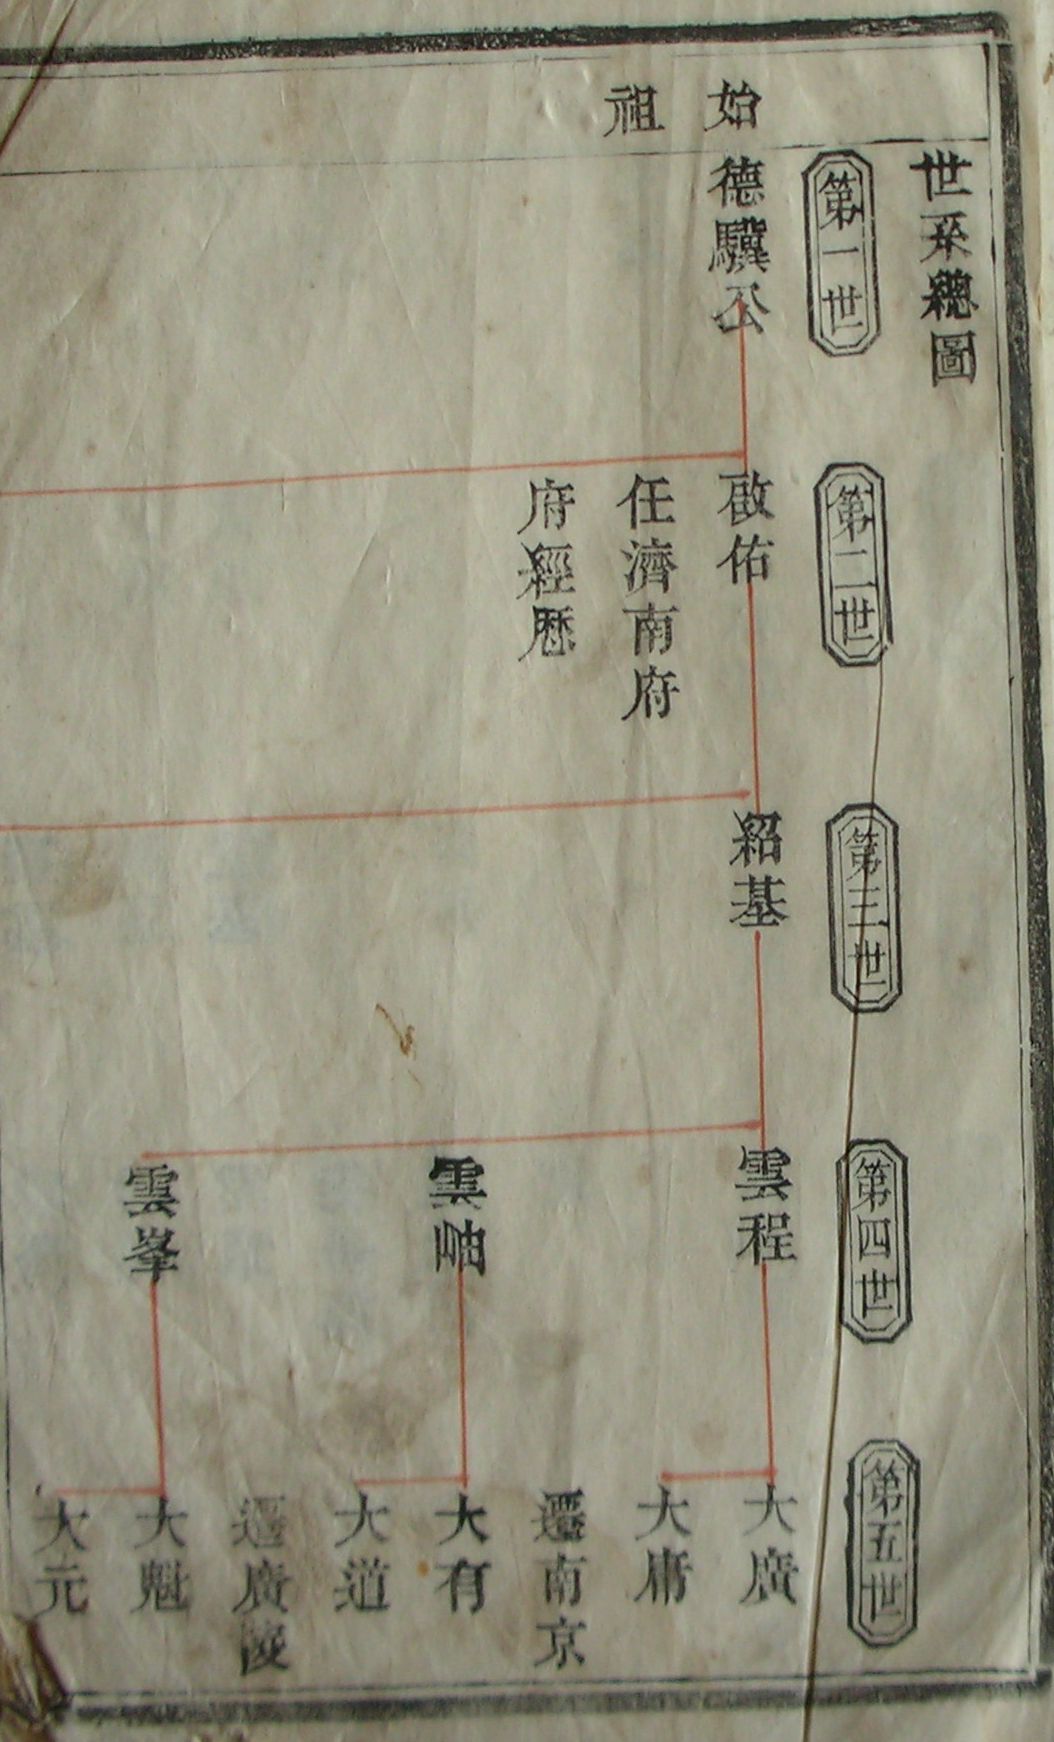 世系總圖
第一世
第二世
第三世
第四世
第五世
始祖
德驥公
啟佑
任濟南府
府經歷
紹基
雲程
雲岫
雲峯
大廣
大庸
遷南京
大有
大道
遷廣陵
大魁
大元